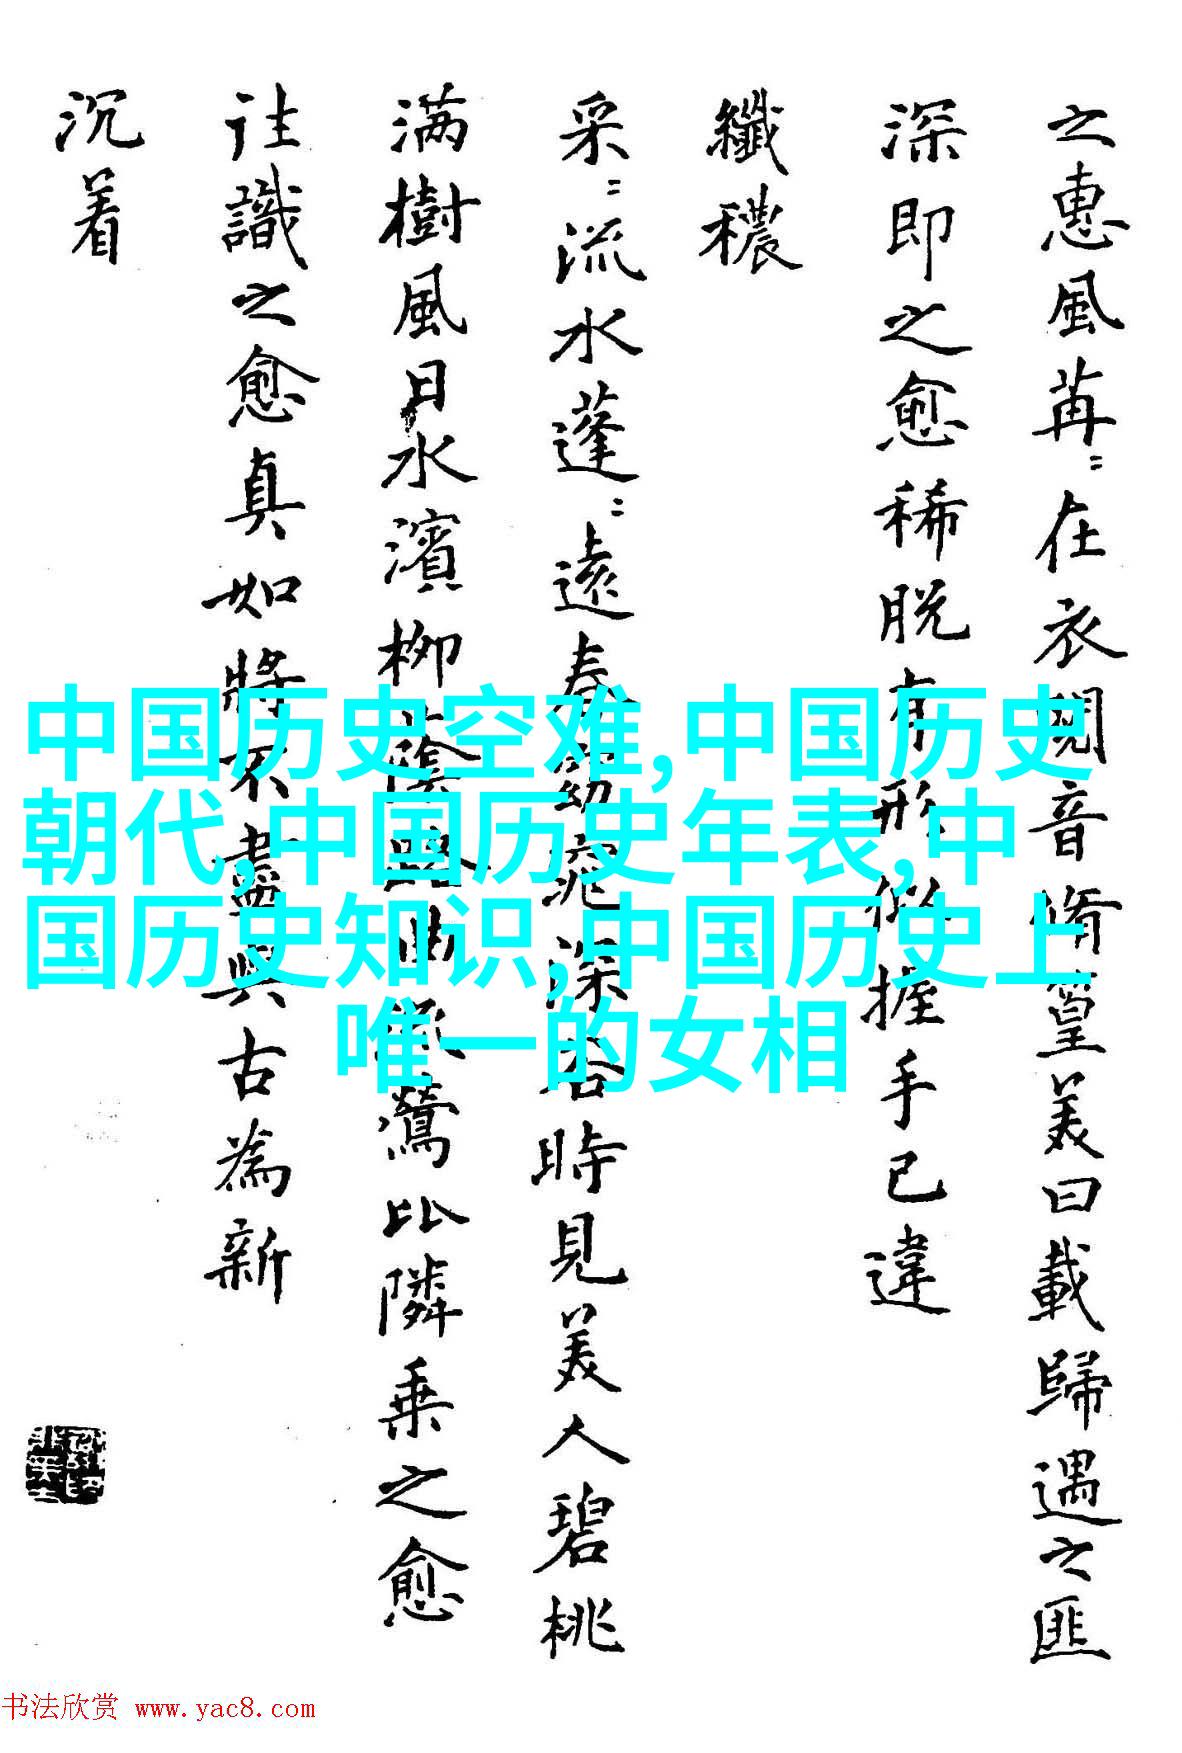 之惠風苒〻在衣閱音脩篁美曰載歸遇之匪
深即之愈稀脱有形似握手已違
纖穠
采〻流水蓬〻遠春窈窕深谷時見美人碧桃
满樹風日水濱柳蔭路曲流鶯比隣乗之愈
往識之愈真如將不盡與古為新
沉着
中国历史空难,中国历史
朝代,中国历史年表,中
国历史知识,中国历史上
唯一的女相
书法欣赏 www.yac8.com